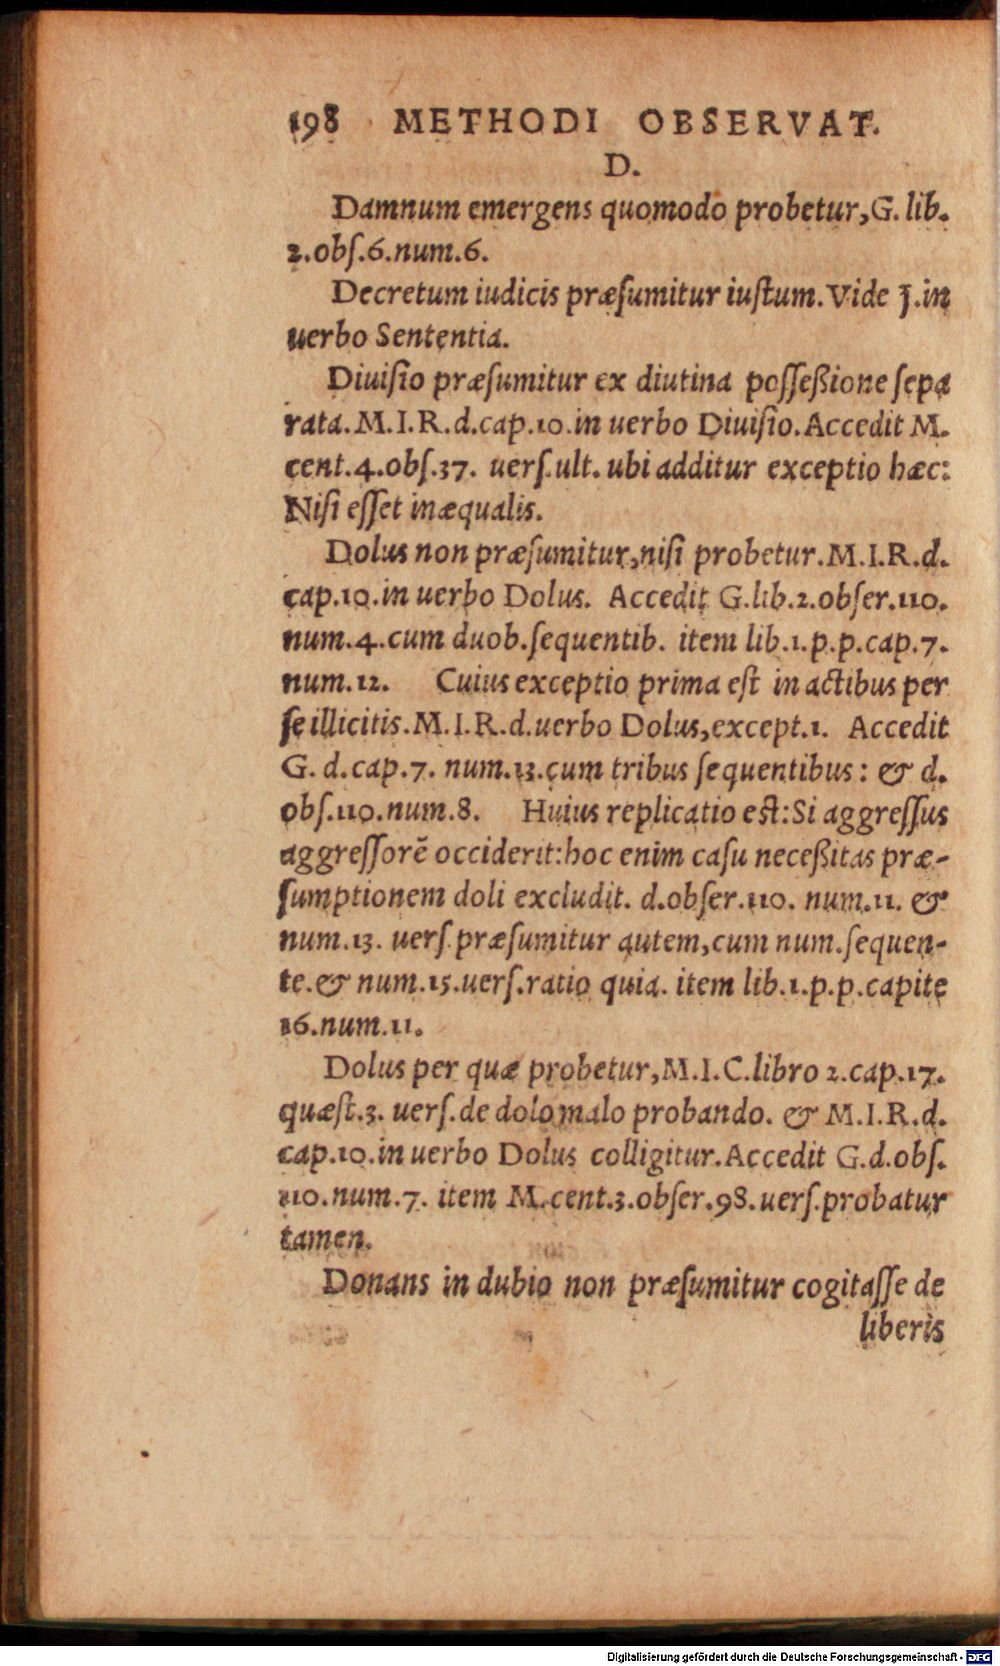 198 METHODI OBSERVAT.
D.
Damnum emergens quomodo probetur, G. lib.
2.obſ.6.num.6.
Decretum iudicis præſumitur iuſtum. Vide J.in
uerbo Sententia.
Diuiſio præſumitur ex diutina poſſeßione ſepa
rata. M.I.R.d.cap.10.in uerbo Diuiſio. Accedit M.
cent.4.obſ.37. uerſ.ult. ubi additur exceptio hæc:
Niſi eſſet inæqualis.
Dolus non præſumitur, niſi probetur. M.I.R.d.
cap.10.in uerbo Dolus. Accedit G.lib.2.obſer.110.
num.4.cum duob.ſequentib. item lib.1.p.p.cap.7.
num.12. Cuius exceptio prima eſt in actibus per
ſe illicitis. M.I.R.d.uerbo Dolus, except.1. Accedit
G. d.cap.7. num.13.cum tribus ſequentibus: & d.
obſ.110.num.8. Huius replicatio eſt: Si aggreſſus
aggreſſorē occiderit: hoc enim caſu neceßitas præ-
ſumptionem doli excludit. d.obſer.110. num.11. &
num.13. uerſ.præſumitur autem, cum num.ſequen-
te. & num.15.uerſ.ratio quia. item lib.1.p.p.capite
16.num.11.
Dolus per quæ probetur, M.I.C.libro 2.cap.17.
quæſt.3. uerſ.de dolo malo probando. & M.I.R.d.
cap.10.in uerbo Dolus colligitur. Accedit G.d.obſ.
110.num.7. item M.cent.3.obſer.98.uerſ.probatur
tamen.
Donans in dubio non præſumitur cogitaſſe de
liberis
Digitalisierung gefördert durch die Deutsche Forschungsgemeinschaft - DFG